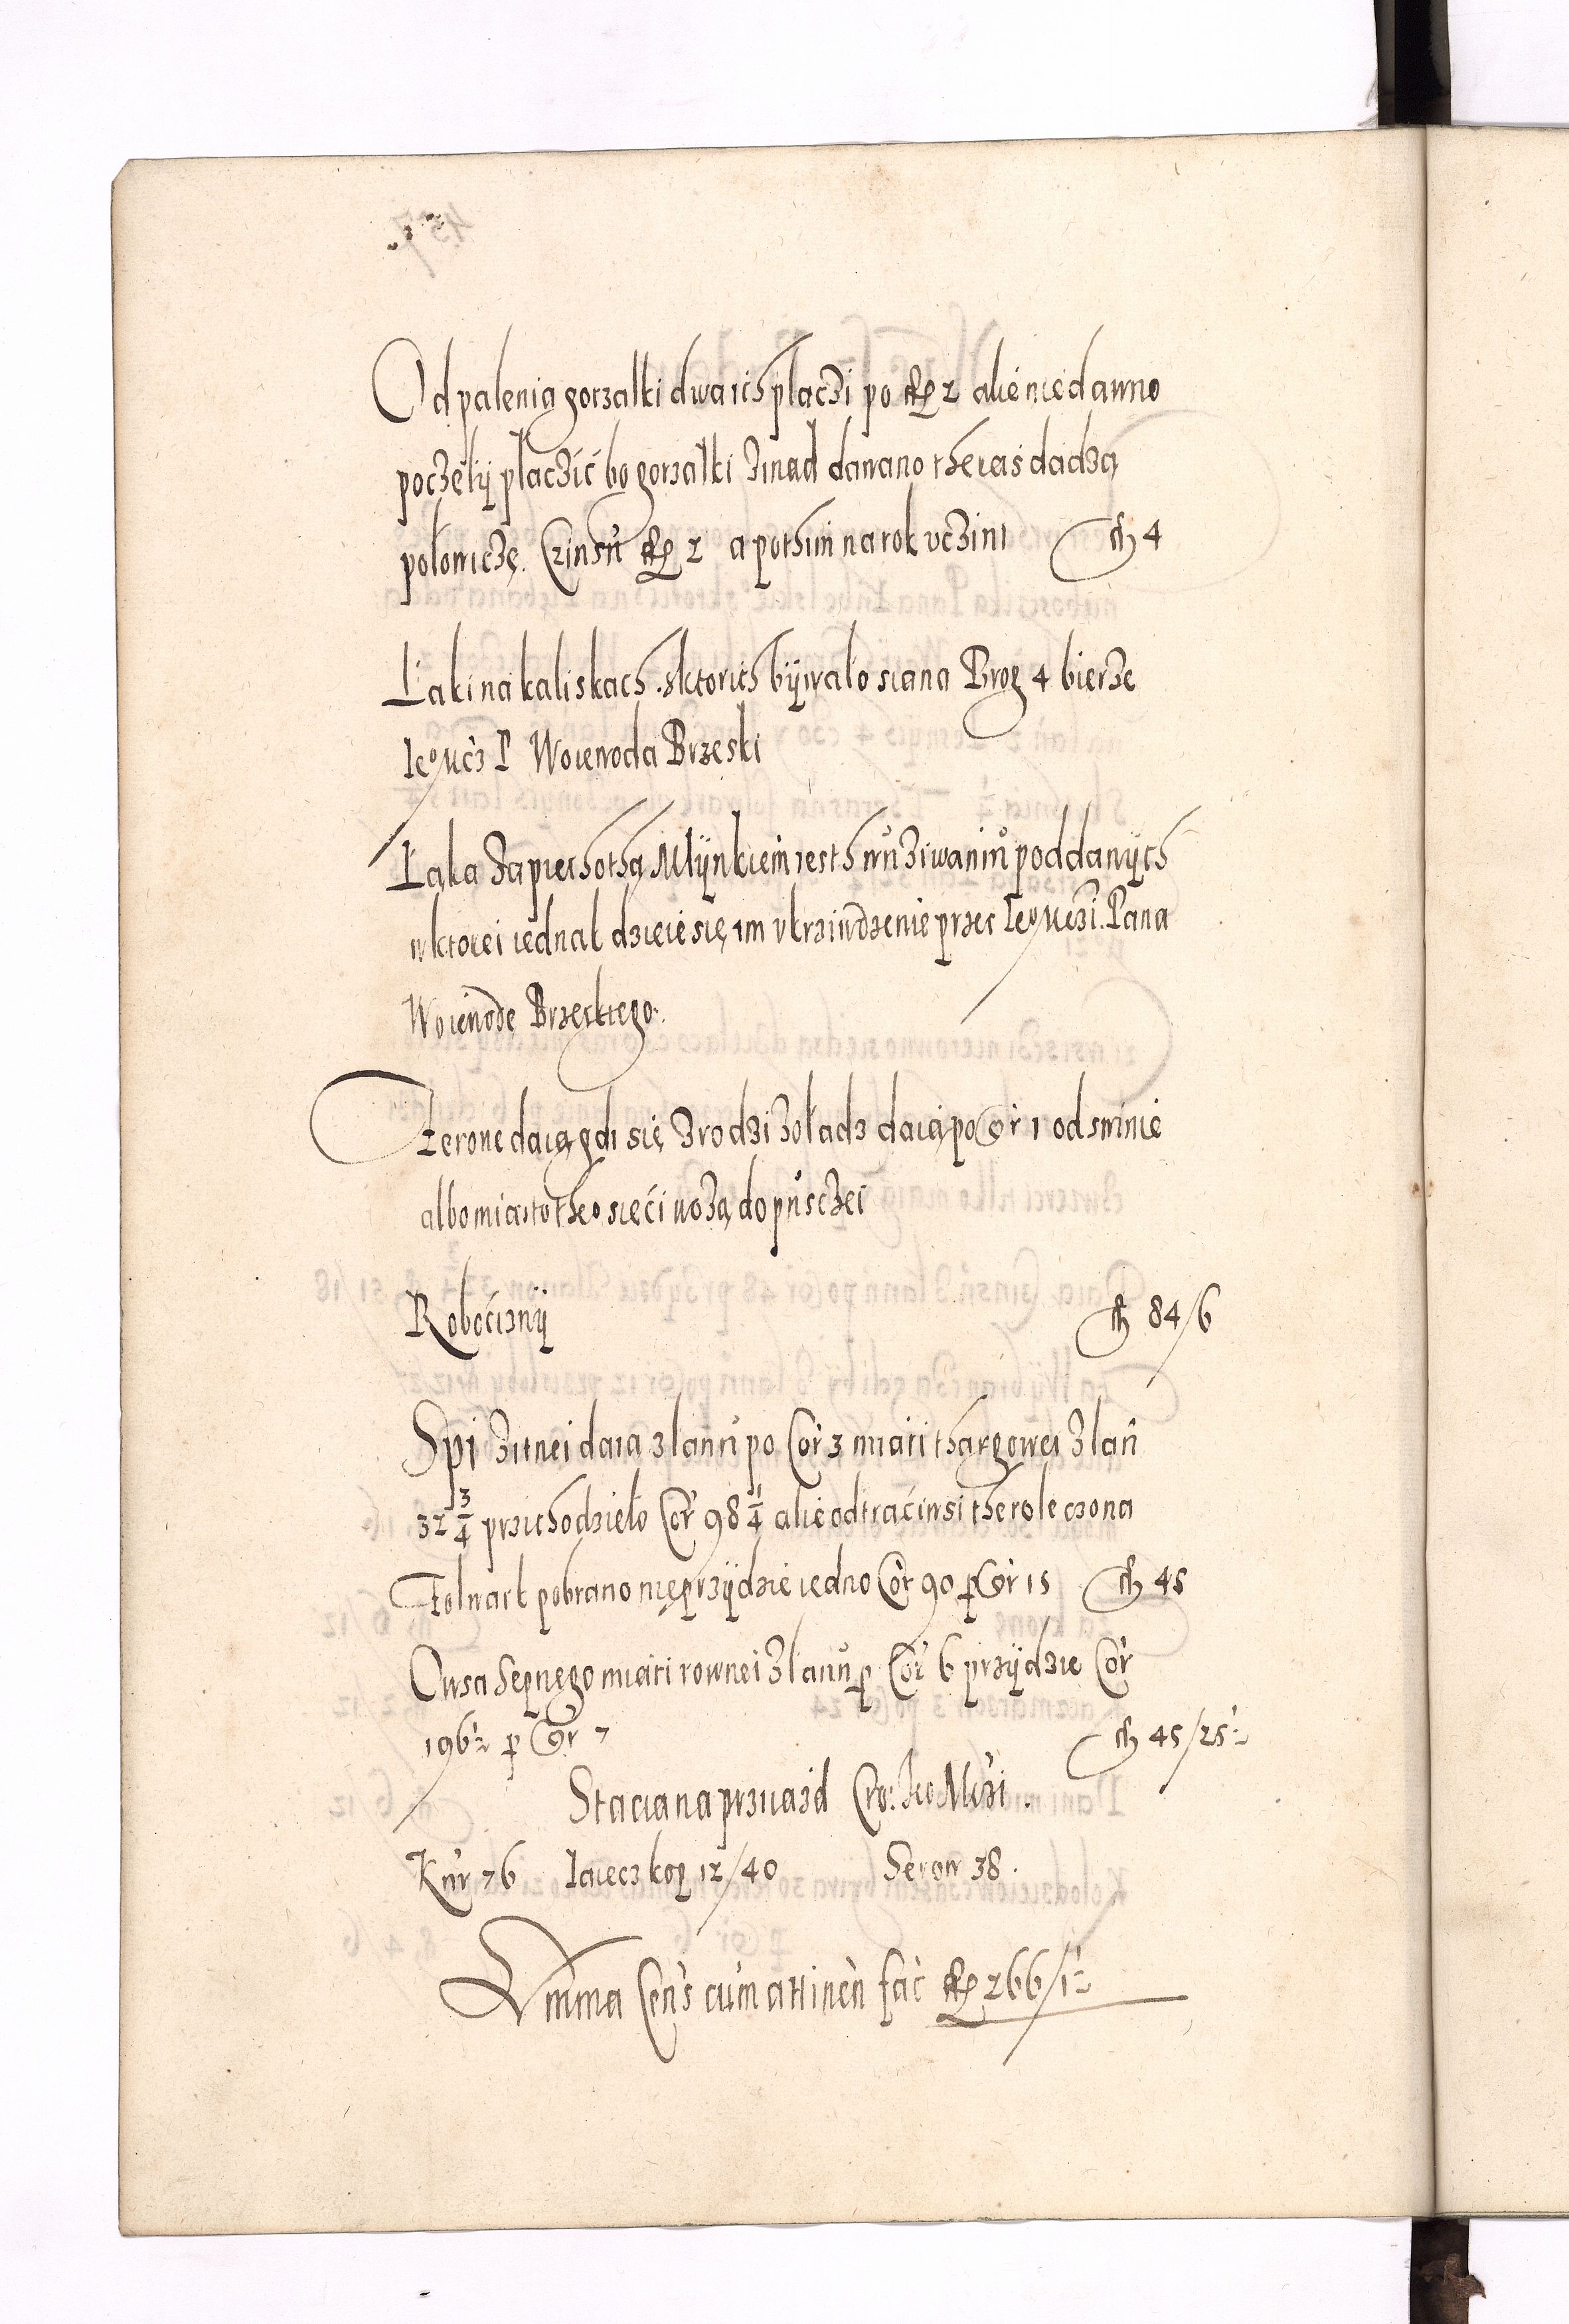 Od palenia gorzalki dwa ich płaczi po fl 2 alie niedawno
poczęlÿ płaczić bo gorzałki zinąd dawano theras dadzą
połowiczę. Czinsú fl 2 a pothim na rok vczini fl 4
Łąki na kaliskach. sktorich bÿwało siana Brog 4 bierze
Ieo Mcz P Woiewoda Brzeski
Łąka za piechothą Mlÿnkiem iesth w vziwaniú poddanÿch
w ktorei iednak dzieie się im vkrziwdzenie przes Ieo Mczi. Pana
Woiewodę Brzeskiego.
Żerone daią gdi się zrodzi żoładz daią po Gr 1 od swinie
albo miasto theo sieci wożą do pusczei
Robociznÿ fl 84/6
Spi żitnei daia z łanú po Cor 3 miari thargowei z łań
32 3/4 przichodzieło Cor 98 1/4 alie odtraciwsi the role czo na
Folwark pobrano nie przÿdzie iedno Cor 90 p Gr 15 fl 45
Owsa Sepnego miari rownei z łanú p Cor 6 przÿdzie Cor
196 ½ p Gr 7 fl 45/25 ½
Stacia na prziazd Cro: Ieo Mczi.
Kúr 76 Iaiecz kop 12/40 Serow 38.
Summa Cens cum attinen fac fl 266/1 ½